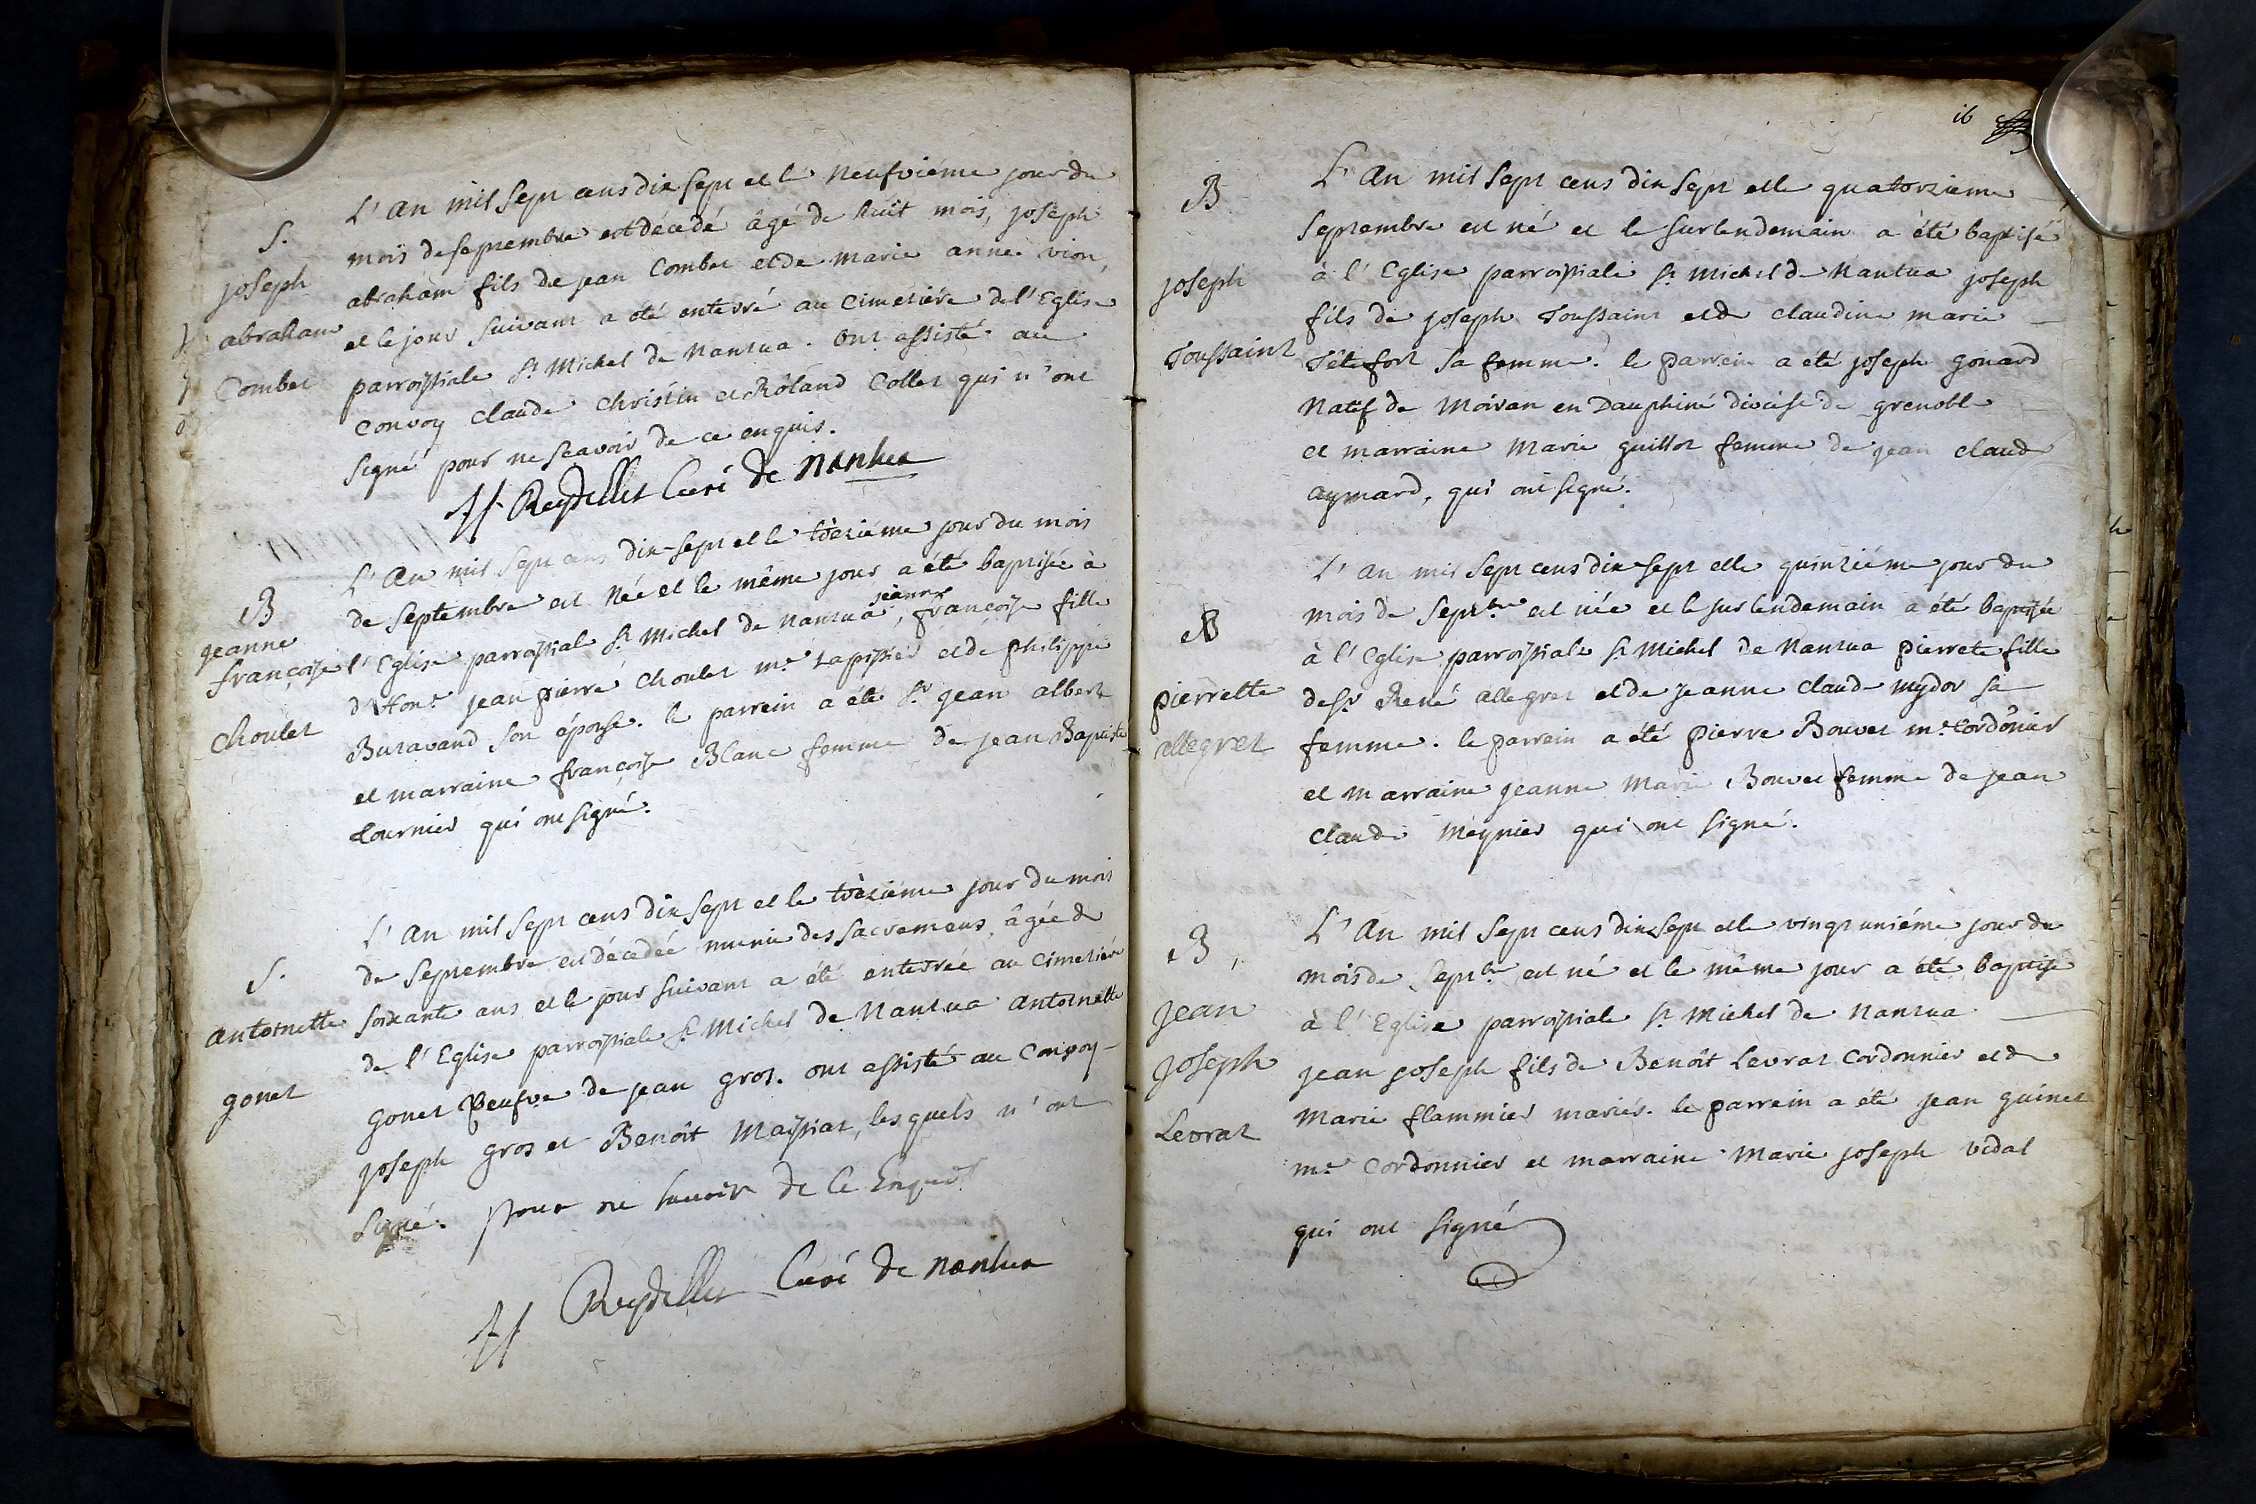 S.
joseph
abraham
Combet
L'an mil sept cens dix sept et le neufviéme jour du
mois de septembre est décedé âgé de huit mois, joseph
abraham fils de jean Combet et de marie anne vion,
et le jour suivant a été enterré au cimetiére de l'Eglise
parroissiale St Michel de Nantua. Ont assisté au
convoy claude christin et Rôland Collet qui n'ont
signé pour ne scavoir de ce enquis.
Reydellet Curé de nantua
B
jeanne
françoise
choulet
L'an mil sept cens dix-sept et le tréziéme jour du mois
de septembre est née et le même jour a été baptisée à
l'Eglise parroissiale St Michel de Nantua, jeanne françoise fille
d'honr. jean pierre choulet mre tapissier et de philippe
Buravand son épouse. le parrein a été Sr jean albert
et marraine françoise Blanc femme de jean Baptiste
tournier qui ont signé.
S.
antoinette
gonet
L'an mil sept cens dix sept et le tréziéme jour du mois
de septembre est décedée munie des sacremens, âgée de
soixante ans et le jour suivant a été enterrée au cimetiére
de l'Eglise parroissiale St Michel de Nantua antoinette
gonet veufve de jean gros. ont assisté au convoy
joseph gros et Benoît Maissiat, lesquels n'ont
signé. pour ne scavoir de ce Enquis
Reydellet Curé de nantua
16
B
joseph
Toussaint
L'an mil sept cens dix sept et le quatorzieme
septembre est né et le surlendemain a été baptisé
à l'Eglise parroissiale St Michel de Nantua joseph
fils de joseph Toussaint et de claudine marie
Têtefort sa femme. le parrein a été joseph gonard
natif de Moiran en Dauphiné diocése de grenoble
et marraine Marie guillot femme de jean claude
aymard, qui ont signé.
B
pierrette
allegret
L'an mil sept cens dix sept et le quinziéme jour du
mois de septbre est née et le surlendemain a été baptisée
à l'Eglise parroissiale St Michel de Nantua pierrete fille
de Sr René allegret et de jeanne claude mydor sa
femme. le parrein a été pierre Bouvet mre cordonier
et marraine jeanne Marie Bouvet femme de jean
claude Meynier qui ont signé.
B,
jean
joseph
Levrat
L'an mil sept cens dix sept et le vingt uniéme jour du
mois de septbre est né et le même jour a été baptisé
à l'Eglise parroissiale St Michel de Nantua
jean joseph fils de Benoît Levrat cordonnier et de
Marie flammier mariés. le parrein a été jean guinet
mre cordonnier et marraine Marie joseph vidal
qui ont signé